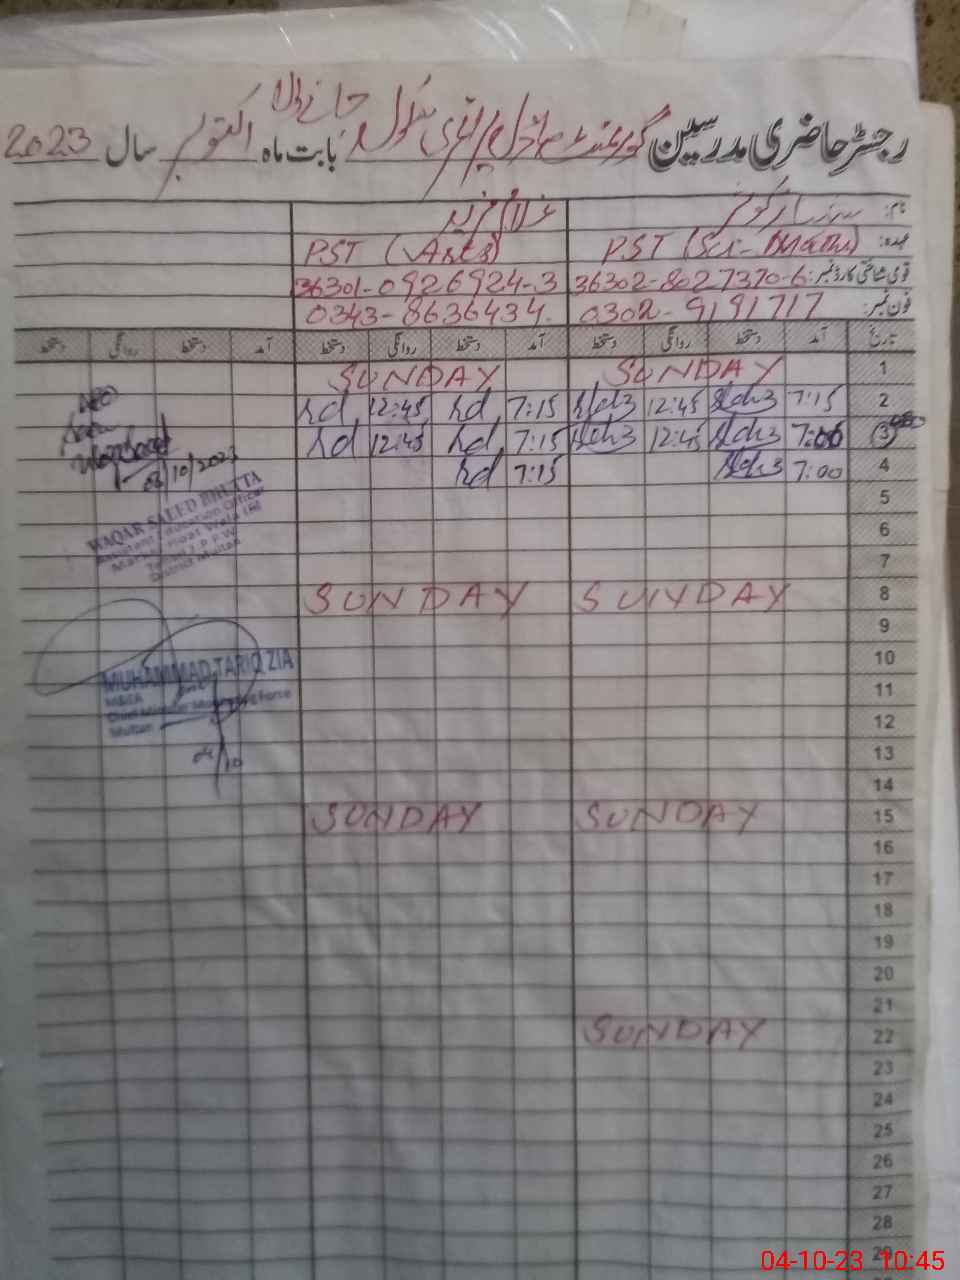 رجسٹر حاضری مدرسین گورنمنٹ ماڈل پرائمری سکول بابت ماہ اکتوبر سال 2023
نام:
عہدہ: PST (Sci-Math) PST (Arts)
قومی شناختی کارڈ نمبر: 36302-8027370-6 36301-0926924-3
فون نمبر: 0302-9191717 0343-8636434
تاریخ آمد دستخط روانگی دستخط آمد دستخط روانگی دستخط آمد دستخط روانگی دستخط
1 SUNDAY SUNDAY
2 7:15 12:45 7:15 rd 12:45 rd
3 7:00 12:45 7:15 rd 12:45 rd
4 7:00 7:15 rd
5
6
7
8 SUNDAY SUNDAY
9
10
11
12
13
14
15 SUNDAY SUNDAY
16
17
18
19
20
21
22 SUNDAY
23
24
25
26
27
28
29
AEO
03/10/2023
WAQAR SAEED BHUTTA
Assistant Education Officer
District Multan
MUHAMMAD TARIQ ZIA
MEA
Chief Minister Monitoring Force
Multan
04/10
04-10-23 10:45